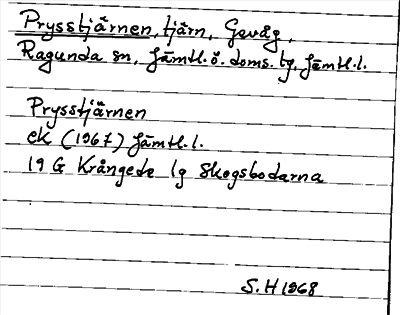 Prysstjärnen, tjärn, Gevåg,
Ragunda sn, Jämtl. ö. doms. tg. Jämtl. l.
Prysstjärnen
ek (1967) Jämtl. l.
19 G Krångede lg Skogsbodarna
S. H 1968